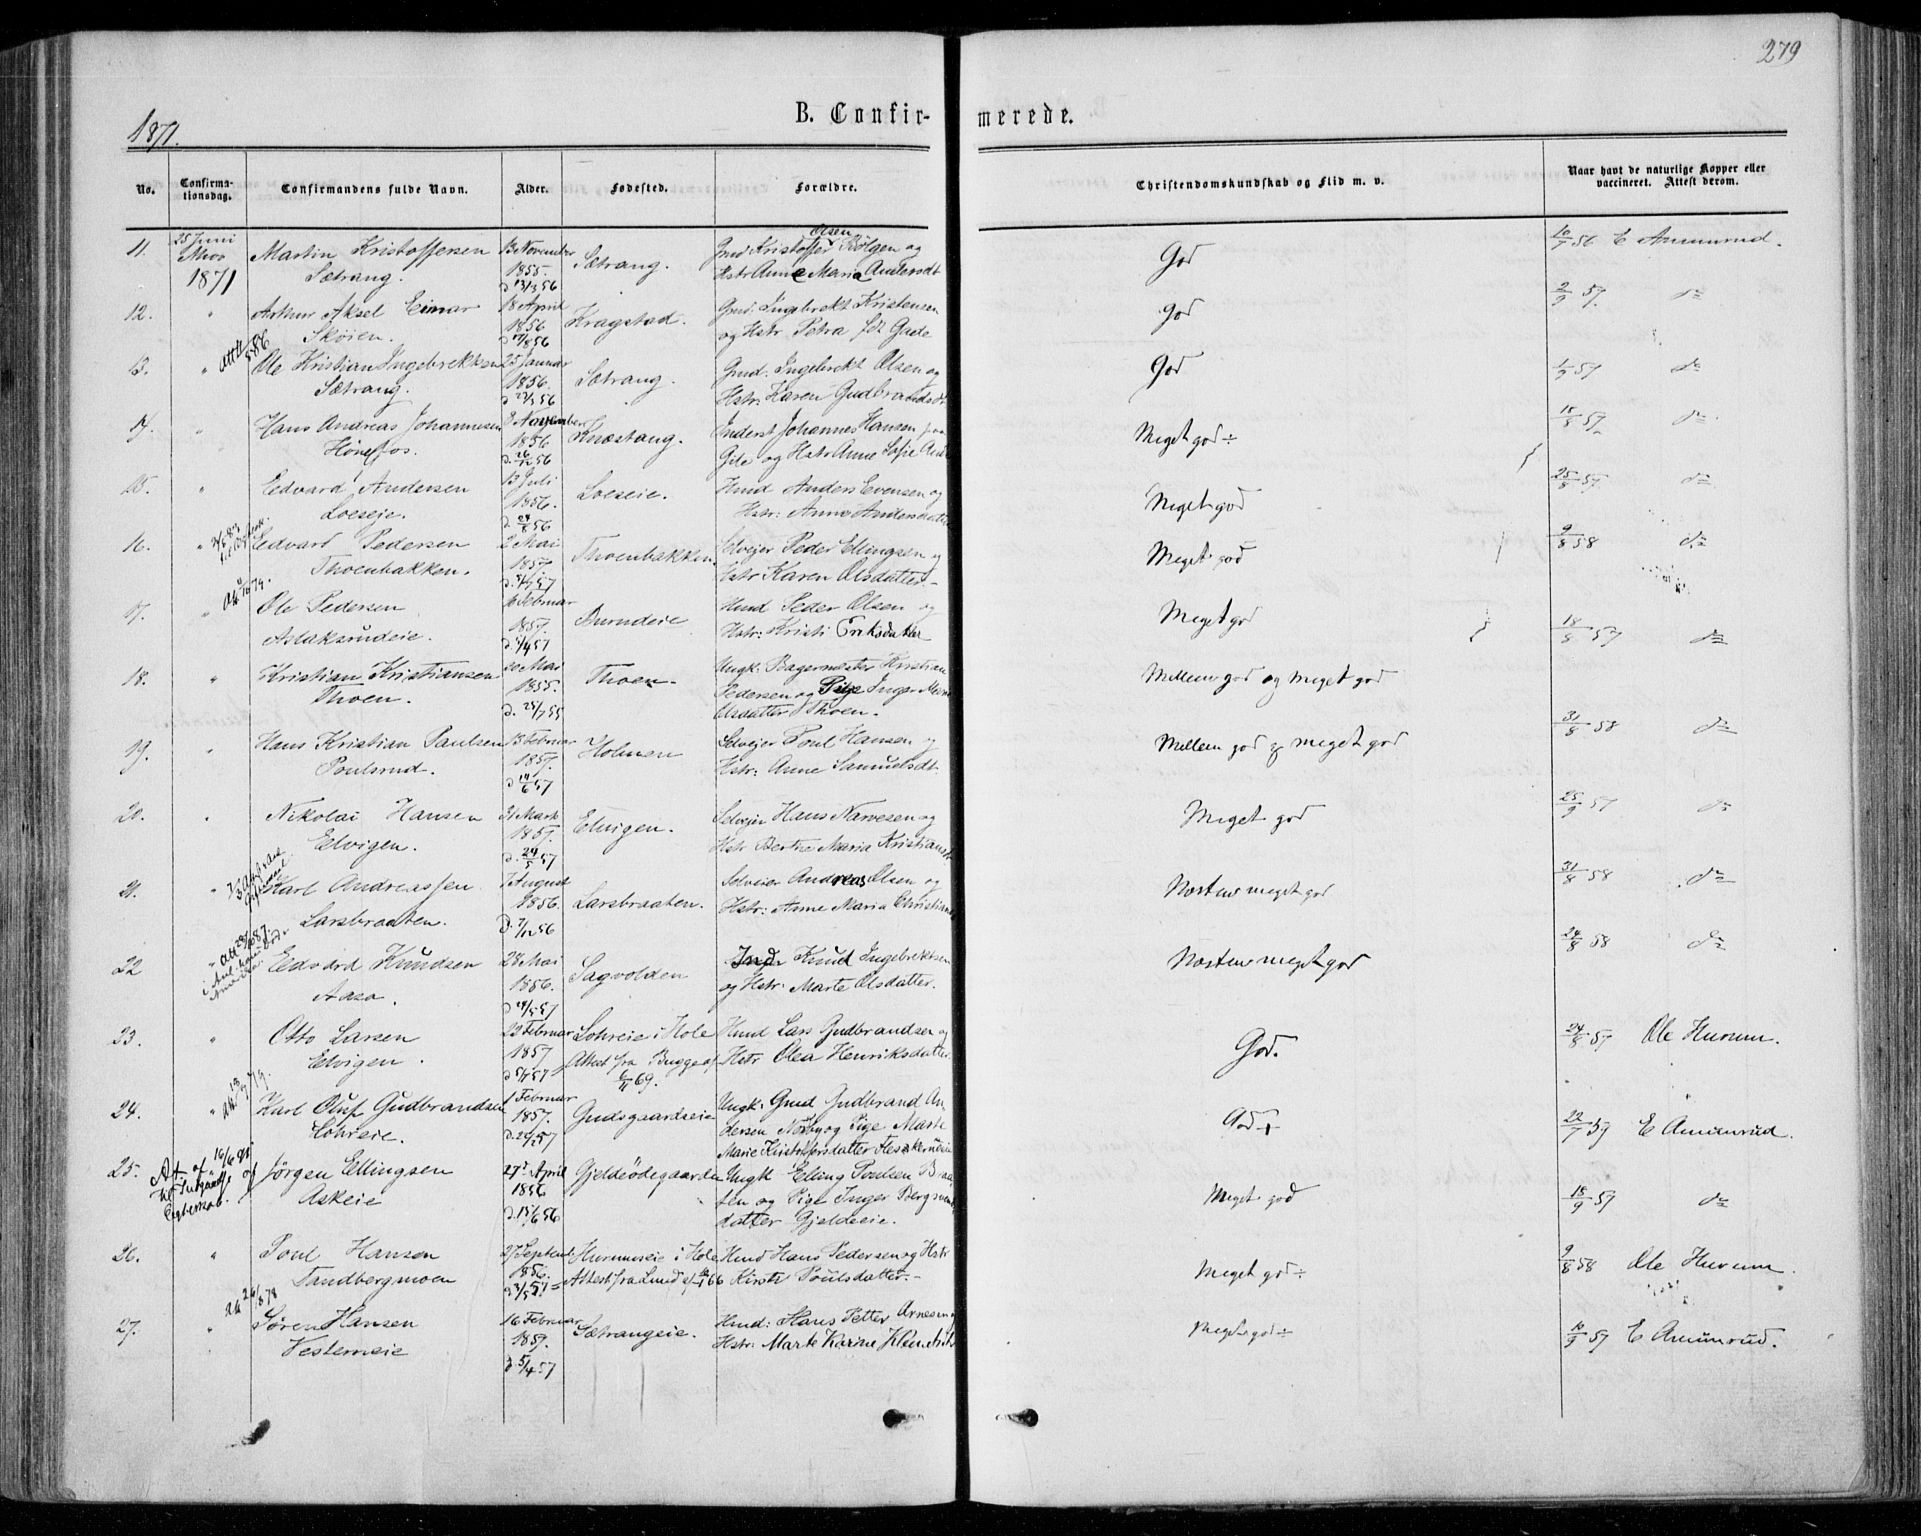 279
1871.
B. Confirmerede.
No. Confirmationsdag. Confirmandens fulde Navn. Alder. Fødested. Forældre. Christendomskundskab og Flid m. v. Naar havt de naturlige Kopper eller vaccineret. Attest derom.
11. 25 Juni 1871 Martin Kristoffersen Sætrang. 13 November 1855. d 13/3 56 Sætrang. Gmd: Kristoffer Olsen Bölgen og Hstr Anne Maria Andersdt God 16/7 56 E Amunrud.
12. " Arthur Aksel Eimar Skøien. 18 April 1856 Kragstad. Gmd: Ingebrekt Kristensen og Hstr. Petra fdt Gade God 2/9 57. do
13. " Ole Kristian Ingebrektsen Sætrang. 25 Januar 1856. d 27/3 56 Sætrang. Gmd: Ingebrekt Olsen og Hstr: Karen Gudbrandsdt God 1/9 57 do
14. " Hans Andreas Johannesen Hönefos. 8 November 1856 d. 26/12 56 Knæstang. Inderst Johannes Hansen paa Gile og Hstr Anne Sofie Meget god÷ 18/8 57 do
15. " Edvard Andersen Loeseie. 13 Juli 1856. d 24/8 56 Loeseie. Hmd Anders Evensen og Hstr: Anne Andersdatter Meget god 25/8 57 do
16. " Edvard Pedersen Thoenbakken. 2 Mai 1857. Thoenbakken. Selveier Peder Ellingsen og Hstr Karen Olsdatter.- Meget god 9/8 58 do
17. " Ole Pedersen Aslaksrudeie. Februar 1857. d. /4 57 Burudeie Hmd Peder Olsen og Hstr: Kristi Eriksdatter Meget god 18/8 57 do
18. " Kristian Kristiansen Thoen. 20 Mai 1855. d. 25/7 55 Thoen. Ungk: Bagermester Kristian Pedersen og Pige Inger Marie Olsdatter Thoen. Mellem god og meget god
19. " Hans Kristian Paulsen Poulsrud. 13 Februar 1857. d 14/6 57 Holmen Selveier Poul Hansen og Hstr: Anne Samuelsdt Mellem god & meget god 31/8 58 do
20. " Nikolai Hansen Elvigen. 31 Marts 1857. d. 24/5 57 Elvigen. Selveier Hans Narvesen og Hstr Berthe Maria Kristiansdt Meget god 25/9 57 do
21. " Karl Andreassen Larsbraaten. 7 August 1856. d. 7/12 56 Larsbraaten. Selveier Andreas Olsen og Hstr: Anne Maria Christians Næsten meget god 31/8 58 do
22 " Edvard Knudsen Aasa. 28 Mai 1856. Sagvolden Ind Knud Ingebrektsen og Hstr: Marte Olsdatter. Næsten meget god 24/8 58 do
23. " Otto Larsen Elvigen. 22 Februar 1857 Lohreie i Hole Attest fra Bugge af 6/11 69. Hmd Lars Gudbrandsen og Hstr Olea Henriksdatter. God. 24/8 57 Ole Hurum.
24. " Karl Oluf Gudbrandsen Lohreie. 1 Februar 1857. Gudsgaardseie Ungk: Gmd Gudbrand Andersen Norby og Pige Marte Marie Kristofersdatter God÷ 22/7 57 E Amunrud.
25. Jörgen Ellingsen Askeie 27 April 1856 d. 15/6 56 Gjeldeödegaarden Ungk Elling Poulsen Braaten og Pige Inger Bergsvendsdatter Gjeldeeie. Meget god 18/9 57 do
26. " Poul Hansen Tandbergmoen 27 Septemb 1856. Hurumseie i Hole Attest fra Lund Hmd Hans Pedersen og Hstr Kirsti Poulsdatter.- Meget god÷ 9/8 58 Ole Hurum.
27. " Sören Hansen Vesterneie 16 Februar 1857. d. 5/4 57 Sætrangeie. Hmd: Hans Petter Arnesen og Hstr: Marte Karine Meget god÷ 16/9 57 E Amunrud.